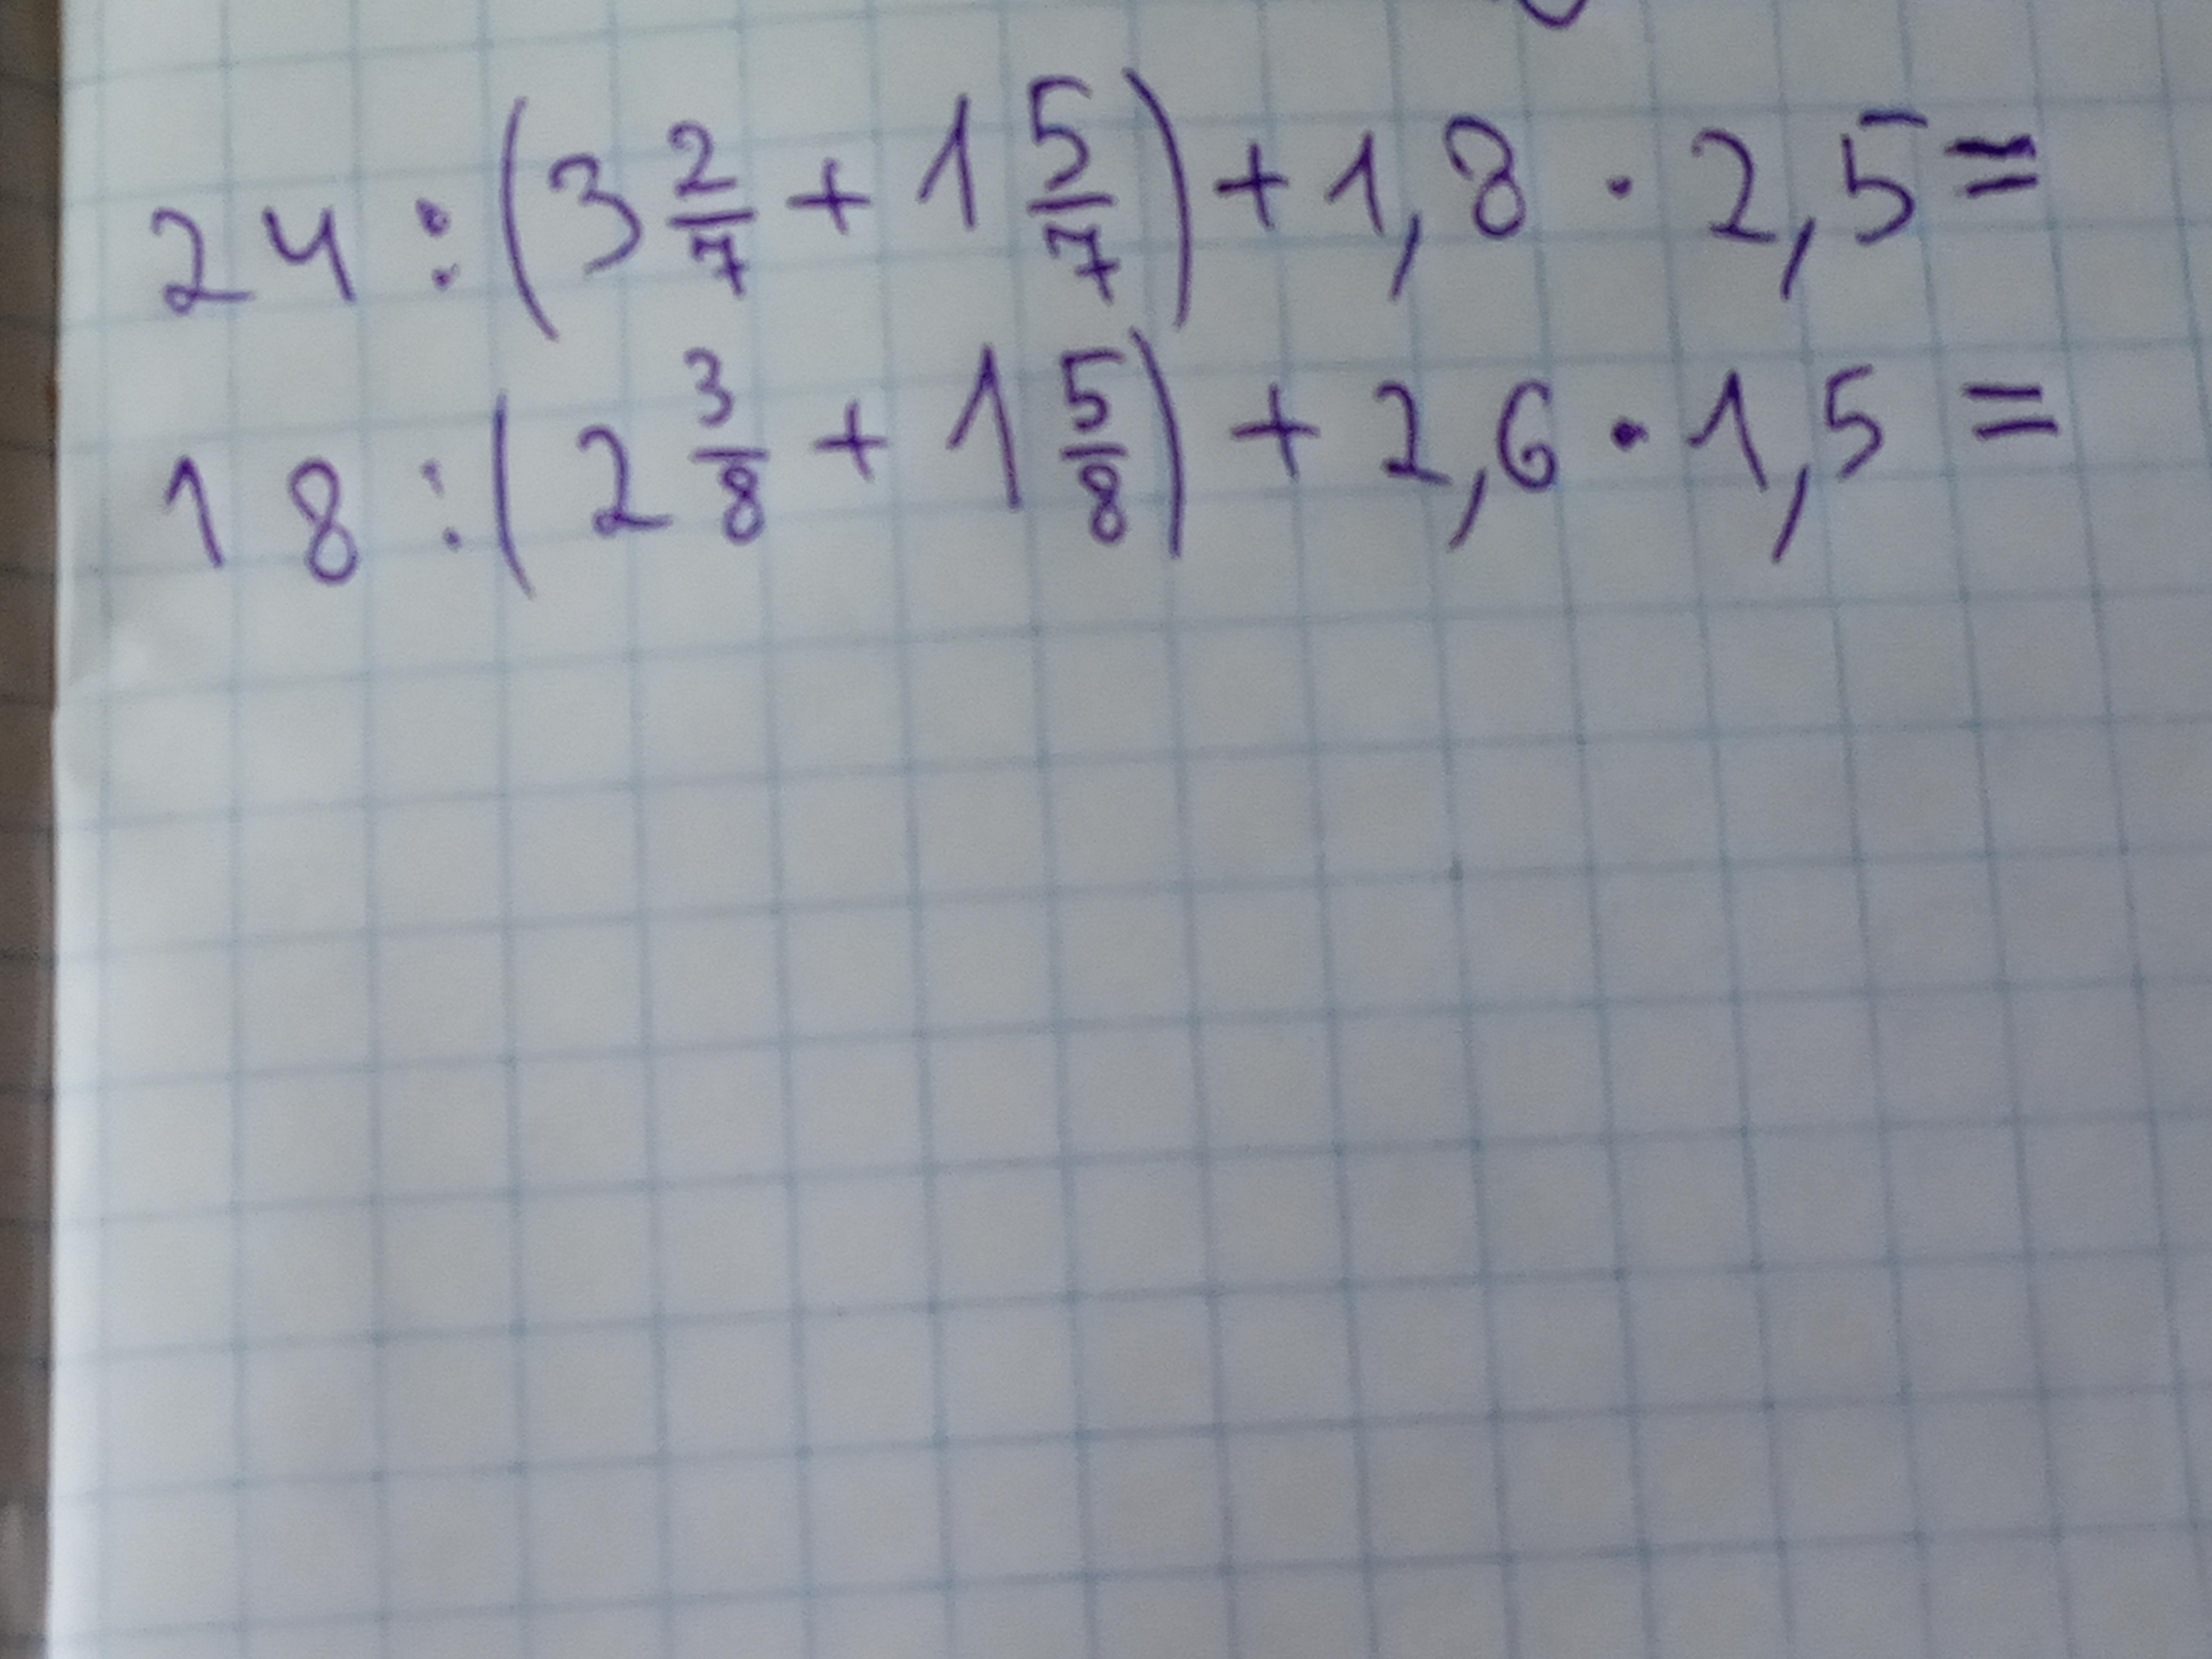 24 : (3 2/7 + 1 5/7) + 1,8 · 2,5 =
18 : (2 3/8 + 1 5/8) + 2,6 · 1,5 =